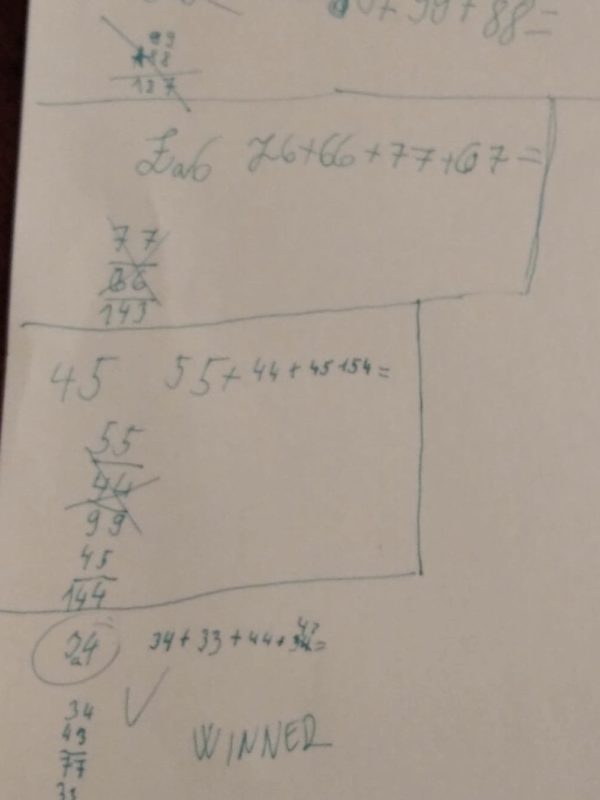 + 99 + 88 =
99
88
187
76+66+77+67=
77
66
143
45 55+44+45+54=
55
44
99
45
144
34 34+33+44+43=
34
43
77
33
WINNER